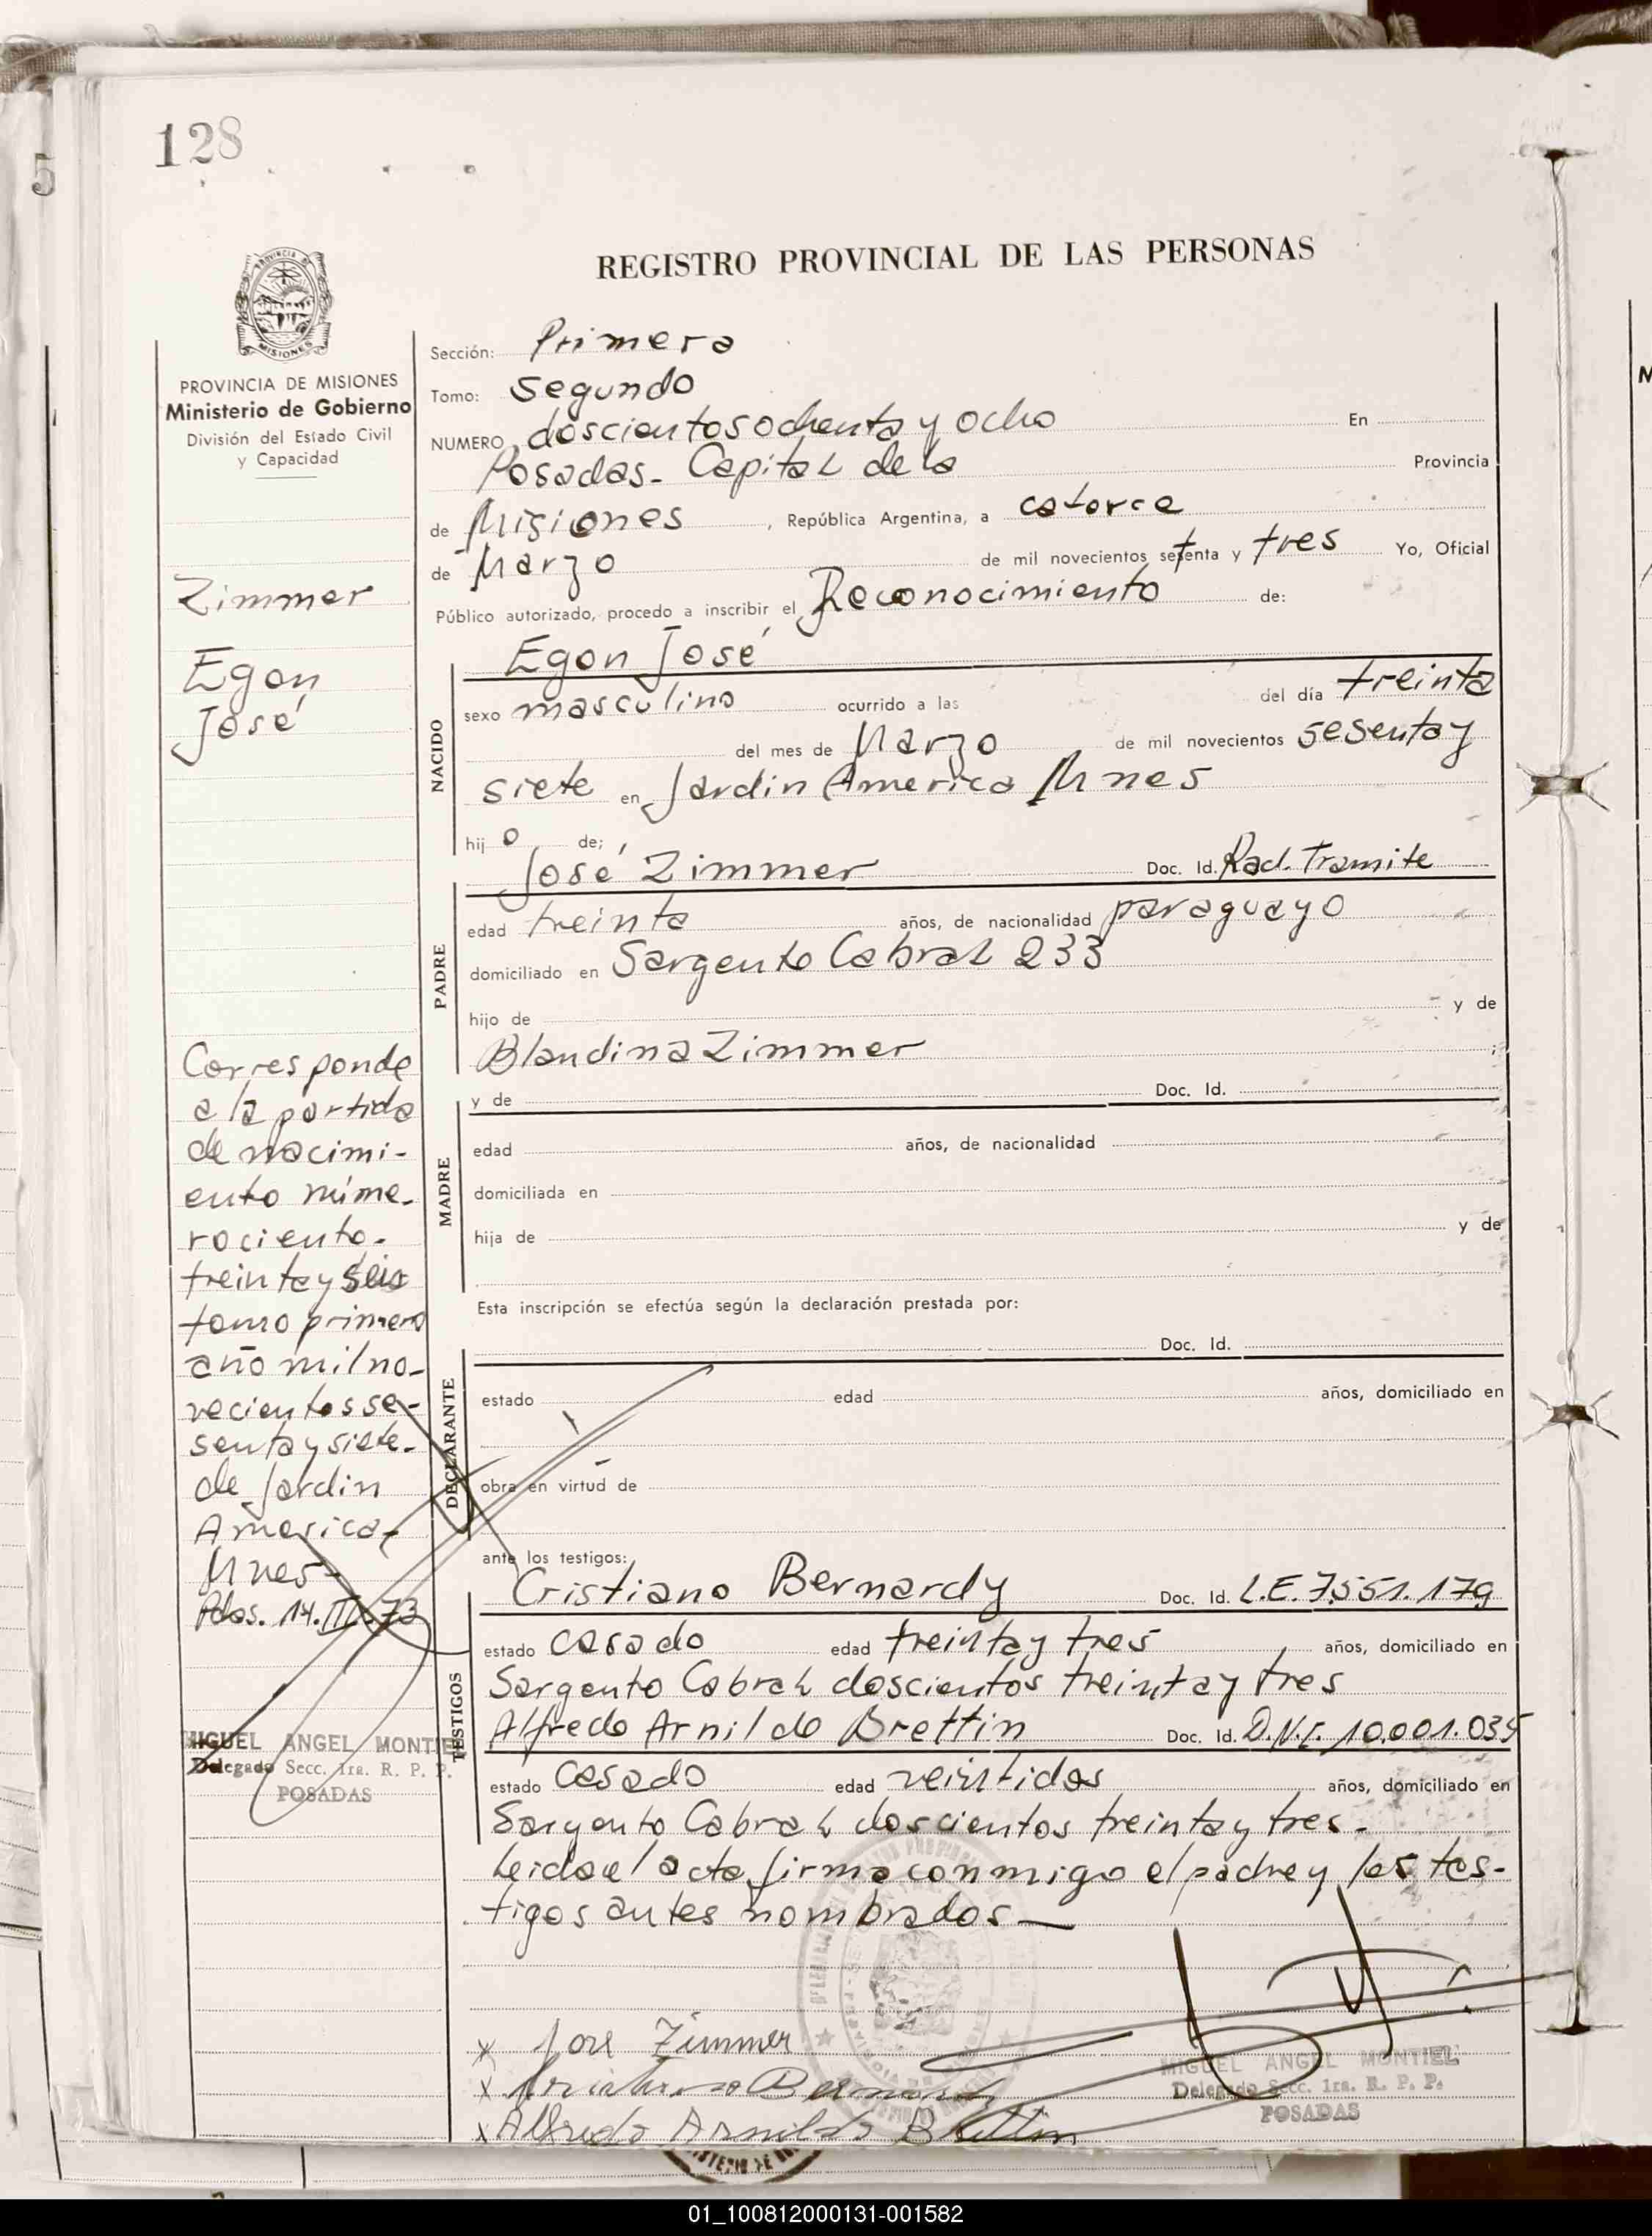 128
5
REGISTRO PROVINCIAL DE LAS PERSONAS
PROVINCIA DE MISIONES
Ministerio de Gobierno
División del Estado Civil
y Capacidad
Zimmer
Egon
José
Corresponde
a la partida
de nacimi-
ento núme-
ro ciento-
treinta y seis
tomo primero
año mil no-
vecientos se-
senta y siete-
de Jardin
America-
Mnes-
Pdas. 14.III.73
MIGUEL ANGEL MONTIEL
Delegado Secc. 1ra. R. P. P.
POSADAS
Sección: Primera
Tomo: Segundo
NUMERO doscientos ochenta y ocho En
Posadas- Capital de la Provincia
de Misiones, República Argentina, a catorce
de Marzo de mil novecientos setenta y tres Yo, Oficial
Público autorizado, procedo a inscribir el Reconocimiento de:
Egon José
NACIDO
sexo masculino ocurrido a las del día treinta
del mes de Marzo de mil novecientos sesenta y
siete en Jardin America Mnes
hijo de;
José Zimmer Doc. Id. Rad. Tramite
PADRE
edad treinta años, de nacionalidad paraguayo
domiciliado en Sargento Cabral 233
hijo de y de
Blandina Zimmer ;
y de Doc. Id.
MADRE
edad años, de nacionalidad
domiciliada en
hija de y de
Esta inscripción se efectúa según la declaración prestada por:
Doc. Id.
DECLARANTE
estado edad años, domiciliado en
obra en virtud de
ante los testigos:
Cristiano Bernardy Doc. Id. L.E. 7.551.179
TESTIGOS
estado casado edad treinta y tres años, domiciliado en
Sargento Cabral doscientos treinta y tres
Alfredo Arnildo Brettin Doc. Id. D.N.I. 10.001.035
estado casado edad veintidos años, domiciliado en
Sargento Cabral doscientos treinta y tres-
Leida el acta firma conmigo el padre y los tes-
tigos antes nombrados-
x José Zimmer
x Bernardy
x Alfredo Arnildo Brettin
MIGUEL ANGEL MONTIEL
Delegado Secc. 1ra. R. P. P.
POSADAS
01_100812000131-001582